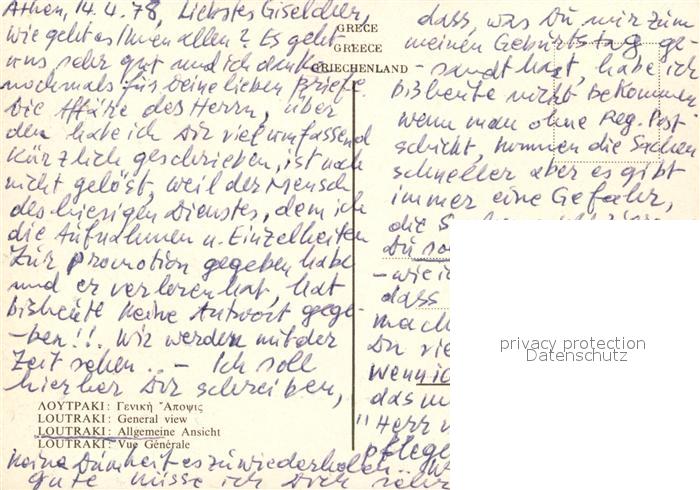 Athen, 14.4.78, Liebstes Giselcher,
wie geht es Ihnen allen? Es geht
uns sehr gut und ich danke
nochmals für Deine lieben Briefe.
Die Affäre des Herrn, über
den habe ich Dir viel umfassend
kürzlich geschrieben, ist noch
nicht gelöst, weil der Mensch
des hiesigen Dienstes, dem ich
die Aufnahmen u. Einzelheiten
zur Promotion gegeben habe
und er verloren hat, hat
bisheute keine Antwort gege-
-ben!!. Wir werden mit der
Zeit sehen.. - Ich soll
hierher Dir schreiben,
GRECE
GREECE
GRIECHENLAND
ΛΟΥΤΡΑΚΙ: Γενικὴ Ἄποψις
LOUTRAKI: General view
LOUTRAKI: Allgemeine Ansicht
LOUTRAKI: Vue Générale
dass, was Du mir zum
meinen Geburtstag ge-
-sandt hast, habe ich
bisheute nicht bekommen
wenn man ohne Reg. Post
schickt, kommen die Sachen
schneller aber es gibt
immer eine Gefahr,
die
Du
-wie
dass
mach
Du
wenn
das
"Herr
pflege
keine Dummheit es zu wiederholen..
gute Küsse ich Dich sehr
privacy protection
Datenschutz